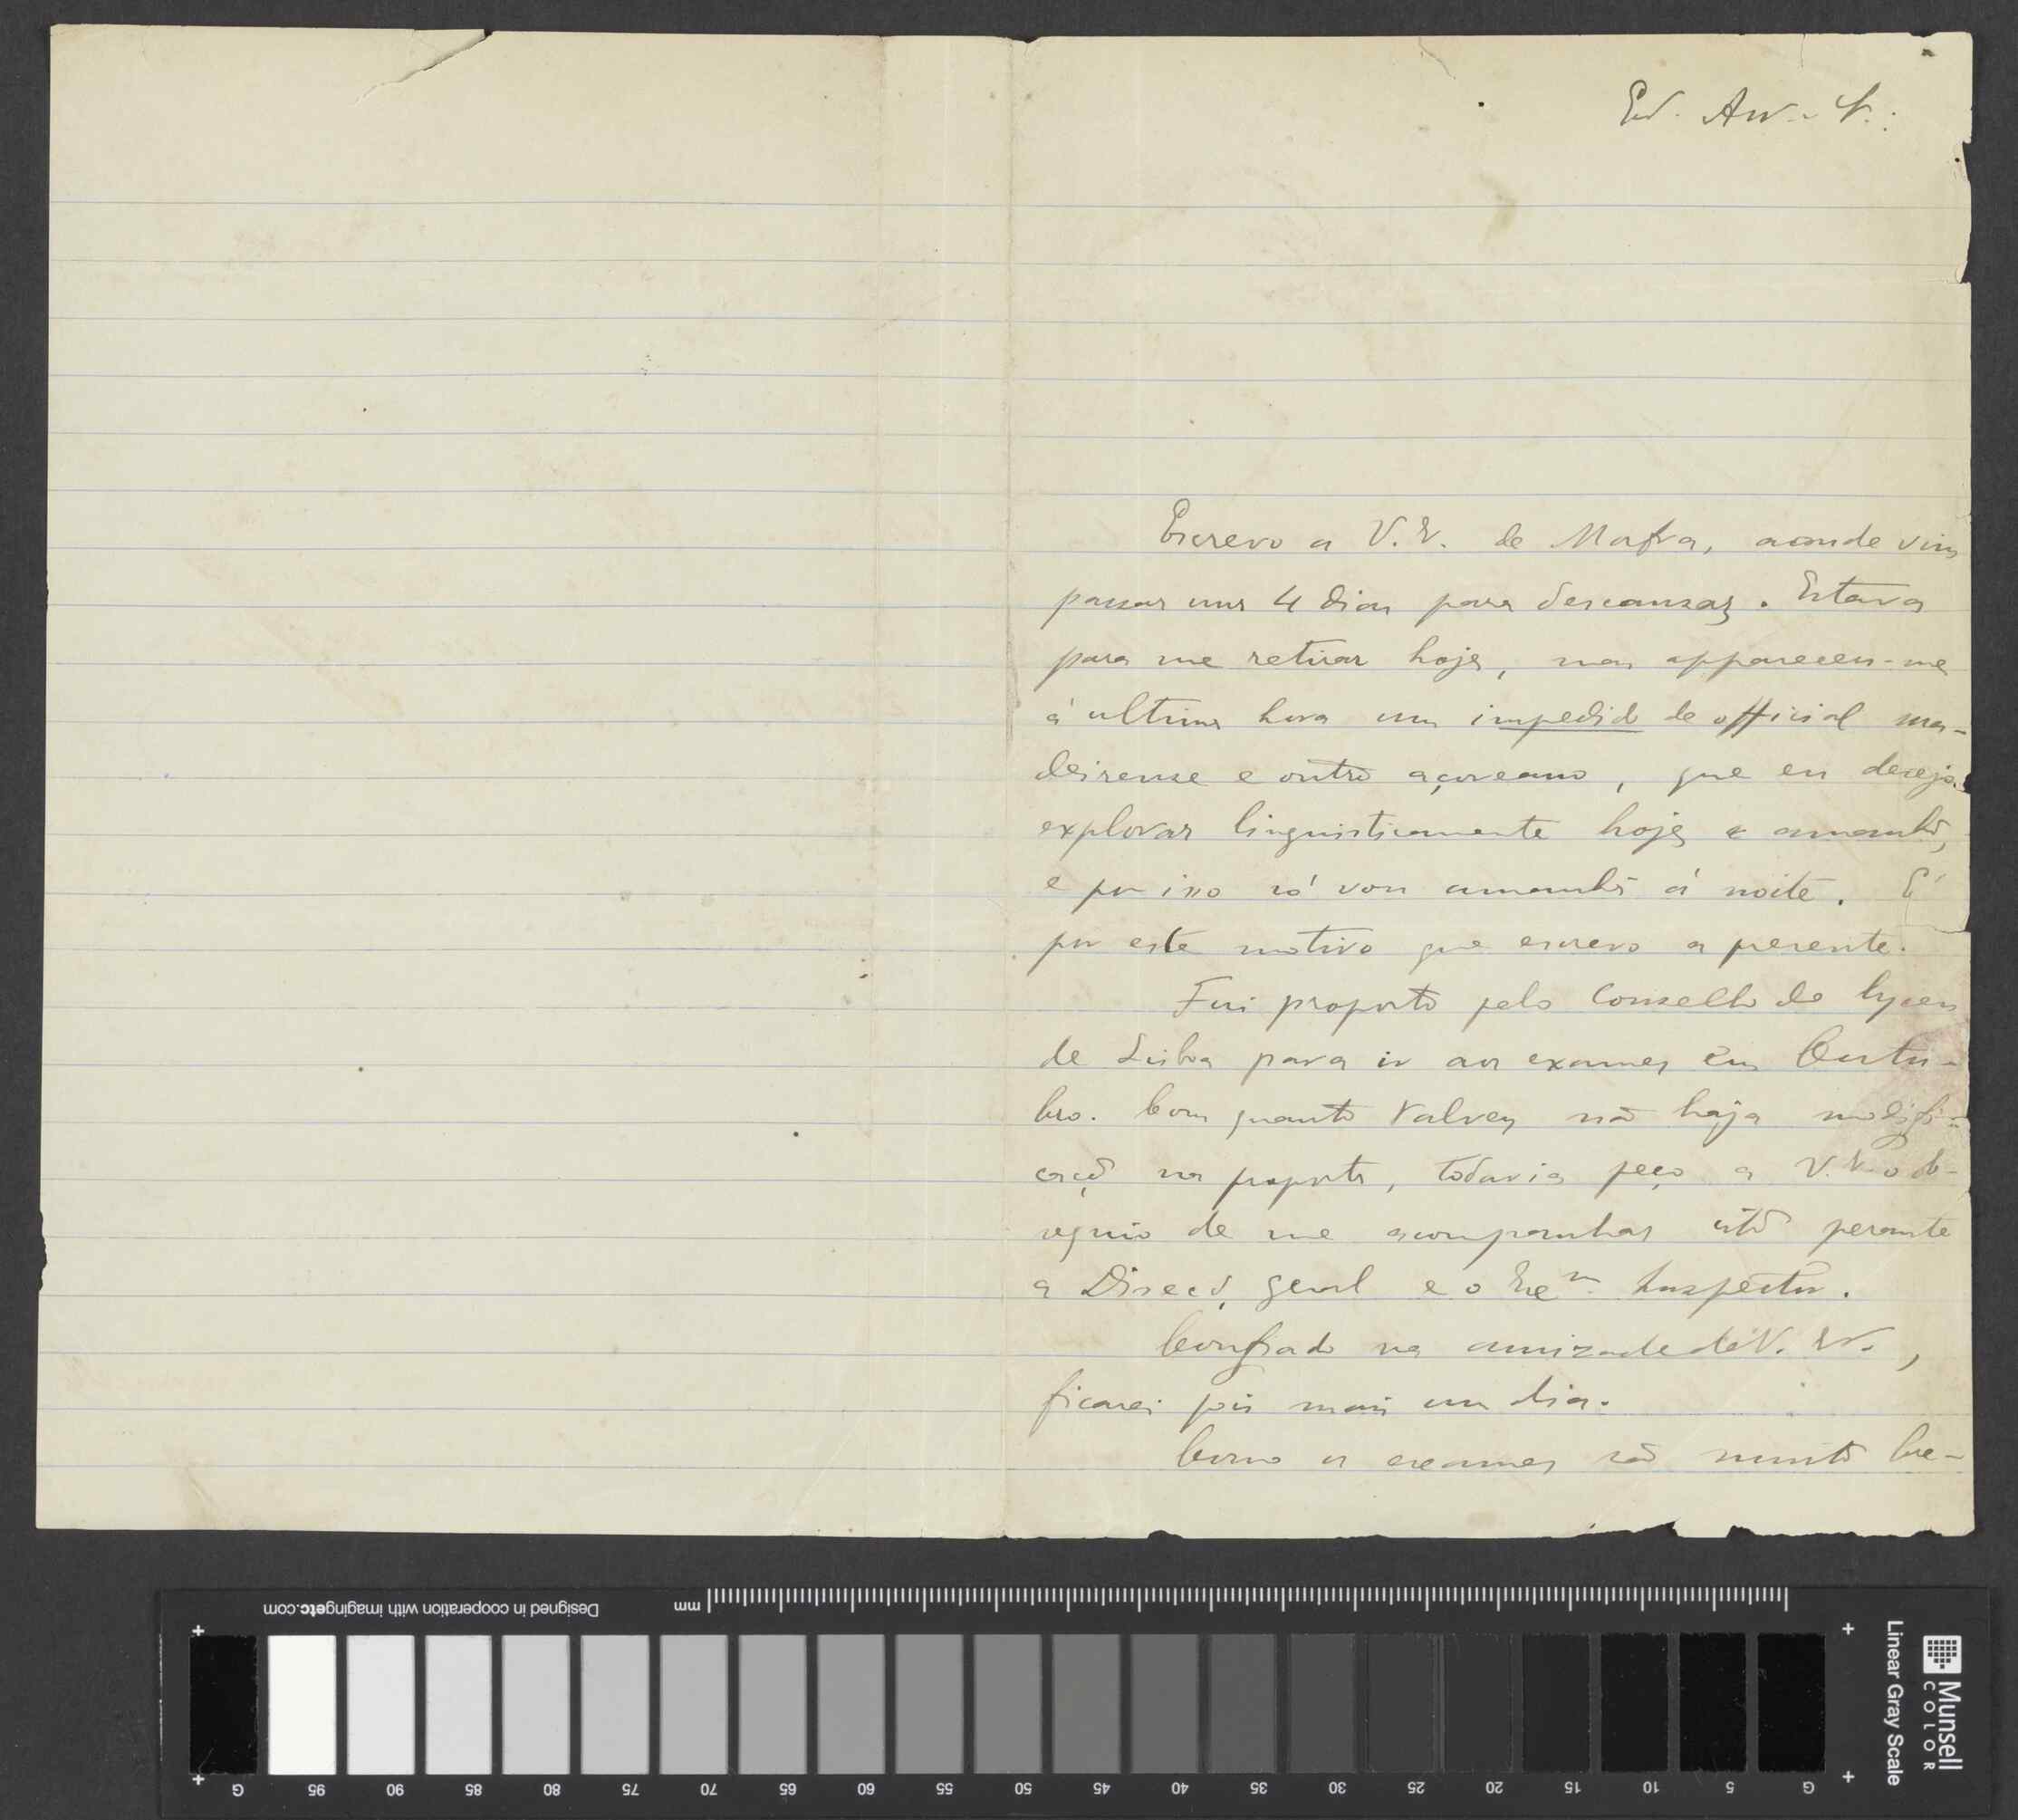 Escrevo a V. E. de Mafra, aonde vim
passar uns 4 dias para descansar. Estava
para me retirar hoje, mas appareceu-me
á ultima hora um impedido de official ma-
deirense e outro açoreano, que eu desejo
explorar linguisticamente hoje e amanhã,
e por isso só vou amanhã á noite. É
por este motivo que escrevo a presente.
Fui proposto pelo Conselho do lyceu
de Lisboa para ir aos exames em Outu-
bro. Com quanto talvez não haja modifi-
cação na proposta, todavia peço a V. E. o ob-
sequio de me acompanhar isto perante
a Direcç. geral e o Exᵐᵒ Inspector.
Confiado na amizade de V. E.,
ficarei pois mais um dia.
Como os exames são muito bre-
mm
Designed in cooperation with imagingetc.com
Munsell
COLOR
Linear Gray Scale
G 95 90 85 80 75 70 65 60 55 50 45 40 35 30 25 20 15 10 5 G